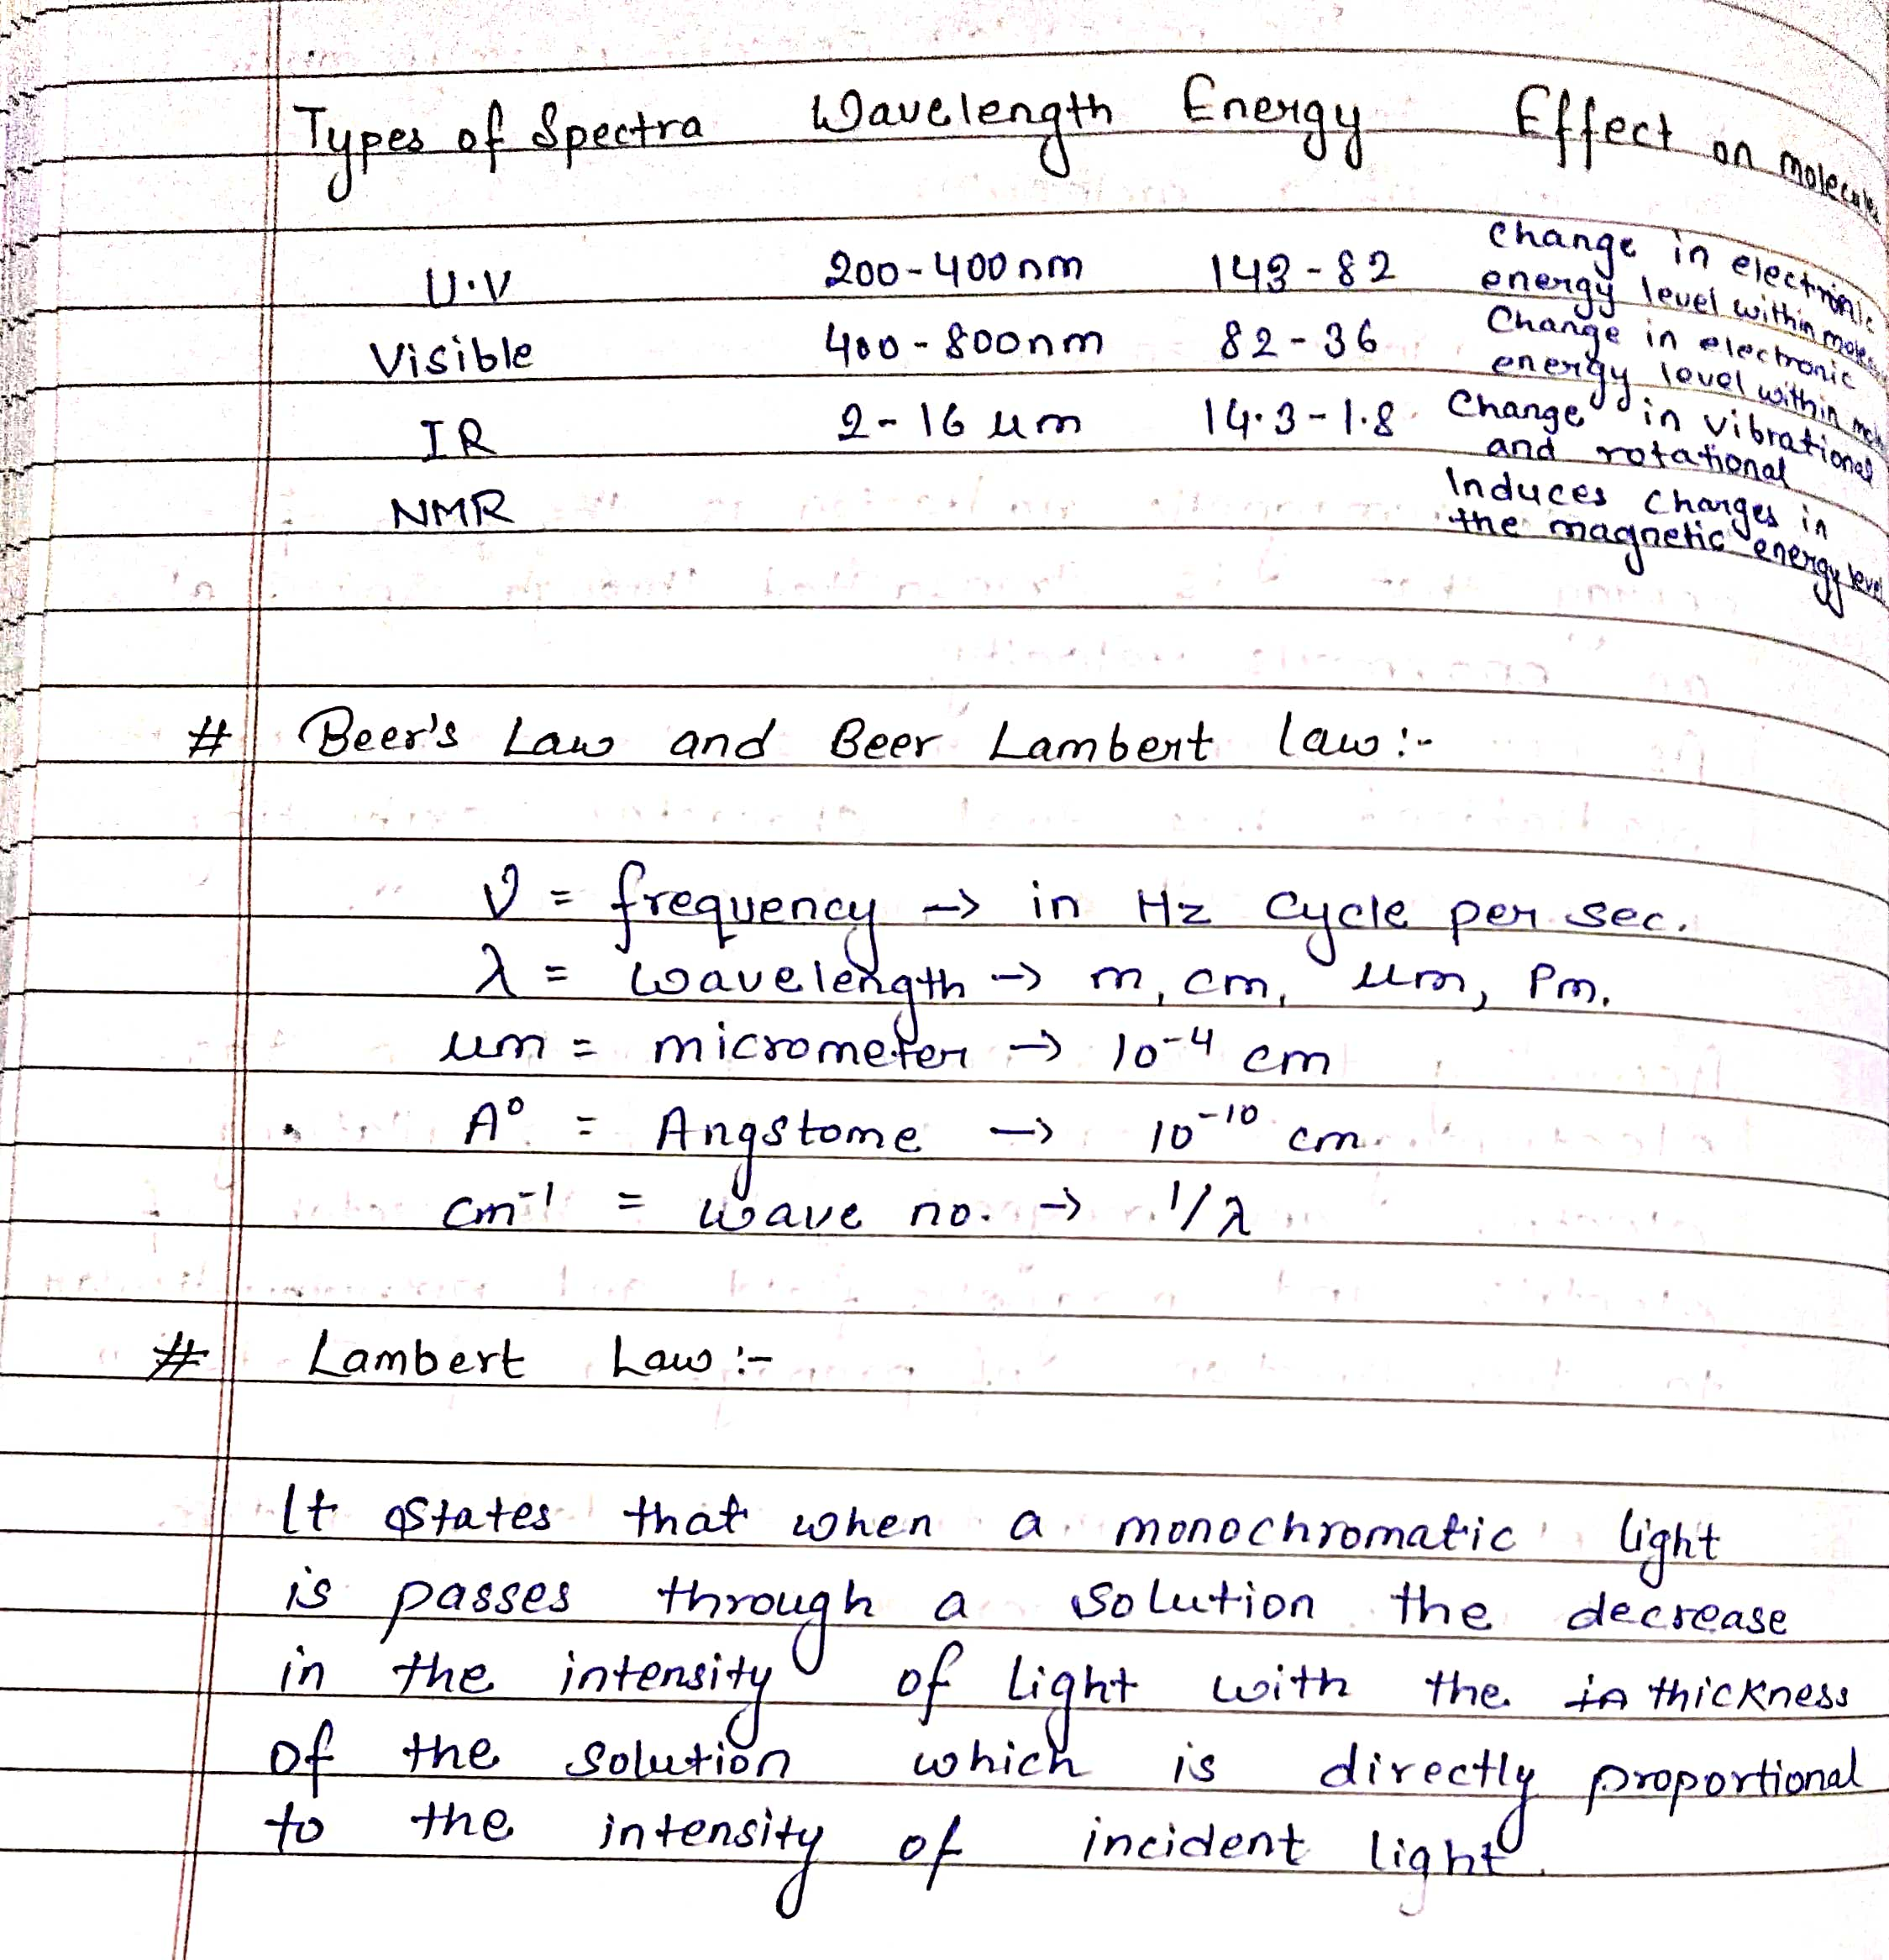 Types of Spectra Wavelength Energy Effect on molecules
U.V 200-400 nm 143-82 Change in electronic energy level within molecule
Visible 400-800nm 82-36 Change in electronic energy level within
IR 2-16 um 14.3-1.8 Change in vibrational and rotational
NMR Induces Changes in the magnetic energy level
# Beer's Law and Beer Lambert law:-
ν = frequency -> in Hz Cycle per sec.
λ = wavelength -> m, cm, um, Pm.
um = micrometer -> 10⁻⁴ cm
A° = Angstome -> 10⁻¹⁰ cm.
cm⁻¹ = wave no. -> 1/λ
# Lambert Law:-
It States that when a monochromatic light
is passes through a solution the decrease
in the intensity of light with the thickness
of the solution which is directly proportional
to the intensity of incident light.